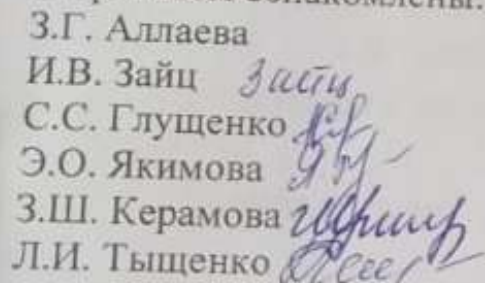 ознакомлены:
З.Г. Аллаева
И.В. Зайц Зайц
С.С. Глущенко
Э.О. Якимова
З.Ш. Керамова
Л.И. Тыщенко